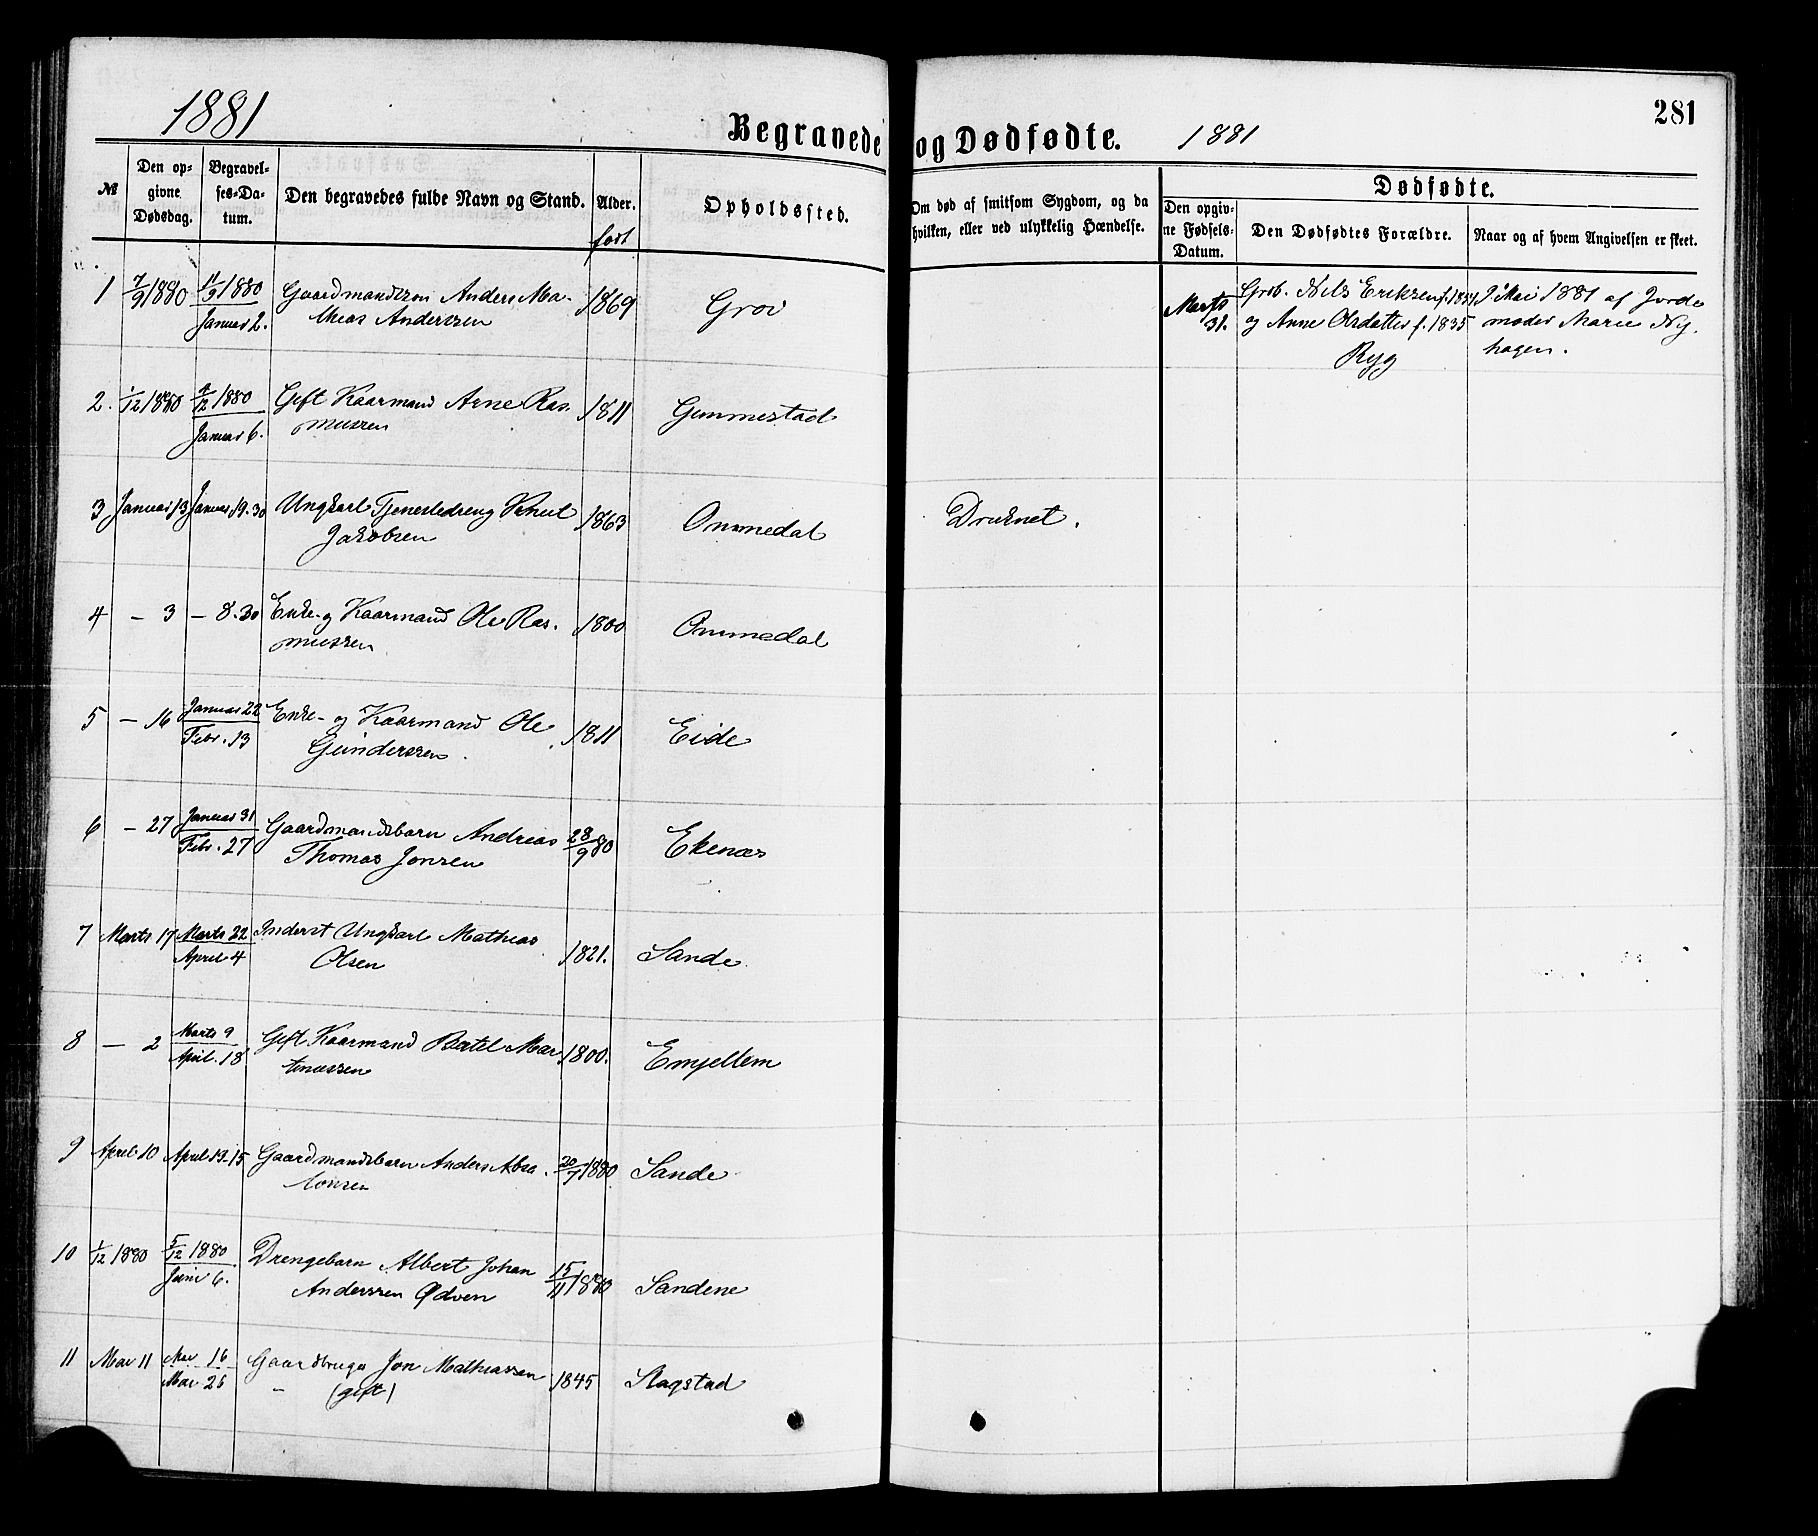 1881
Begravede og Dødfødte. 1881
281
№
Den opgivne Dødsdag.
Begravelses-Datum.
Den begravedes fulde Navn og Stand.
Alder.
født
Opholdssted.
Om død af smitsom Sygdom, og da hvilken, eller ved ulykkelig Hændelse.
Dødfødte.
Den opgivne Fødsels-Datum.
Den Dødfødtes Forældre.
Naar og af hvem Angivelsen er skeet.
1 7/9 1880 11/9 1880 Januar 2. Gaardmandssøn Anders Ma-
thias Anderssen 1869 Grov
Marts 31. Grdb. Nils Eriksen f. 1851
og Anne Olsdatter f. 1835
Ryg
9 Mai 1881 af Jorde
moder Marie Ny-
hagen.
2. 1/12 1880 4/12 1880 Januar 6. Gift Kaarmand Arne Ras-
mussen 1811 Gimmestad
3 Januar 13 Januar 19. 30 Ungkarl Tjenestedreng Knut
Jakobsen 1863 Ommedal Druknet.
4 – 3 – 8. 30 Enke- og Kaarmand Ole Ras-
mussen 1800 Ommedal
5 – 16 Januar 22 Febr. 13 Enke- og Kaarmand Ole
Gunderssen. 1811 Eide
6 – 27 Januar 31 Febr. 27 Gaardmandsbarn Andreas
Thomas Jonsen 28/9 80 Ekenæs
7 Marts 17 Marts 22 April 4 Inderst Ungkarl Mathias
Olsen 1821. Sande
8 – 2 Marts 9 April 18 Gift Kaarmand Bertel Mar-
tinussen 1800. Emjellem
9 April 10 April 19-15 Gaardmandsbarn Anders Absa-
lonsen 20/7 1880 Sande
10 1/12 1880 5/12 1880 Juni 6. Drengebarn Albert Johan
Anderssen Ødven 15/11 1880 Sandene
11 Mai 11 Mai 16 Mai 26 Gaardbruger Jon Mathiassen
– (gift) 1845 Aagstad